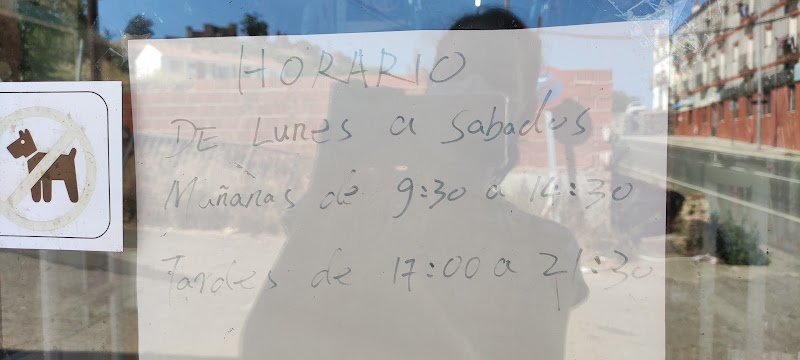 HORARIO
DE Lunes a Sabados
Mañanas de 9:30 a 14:30
Tardes de 17:00 a 21:30